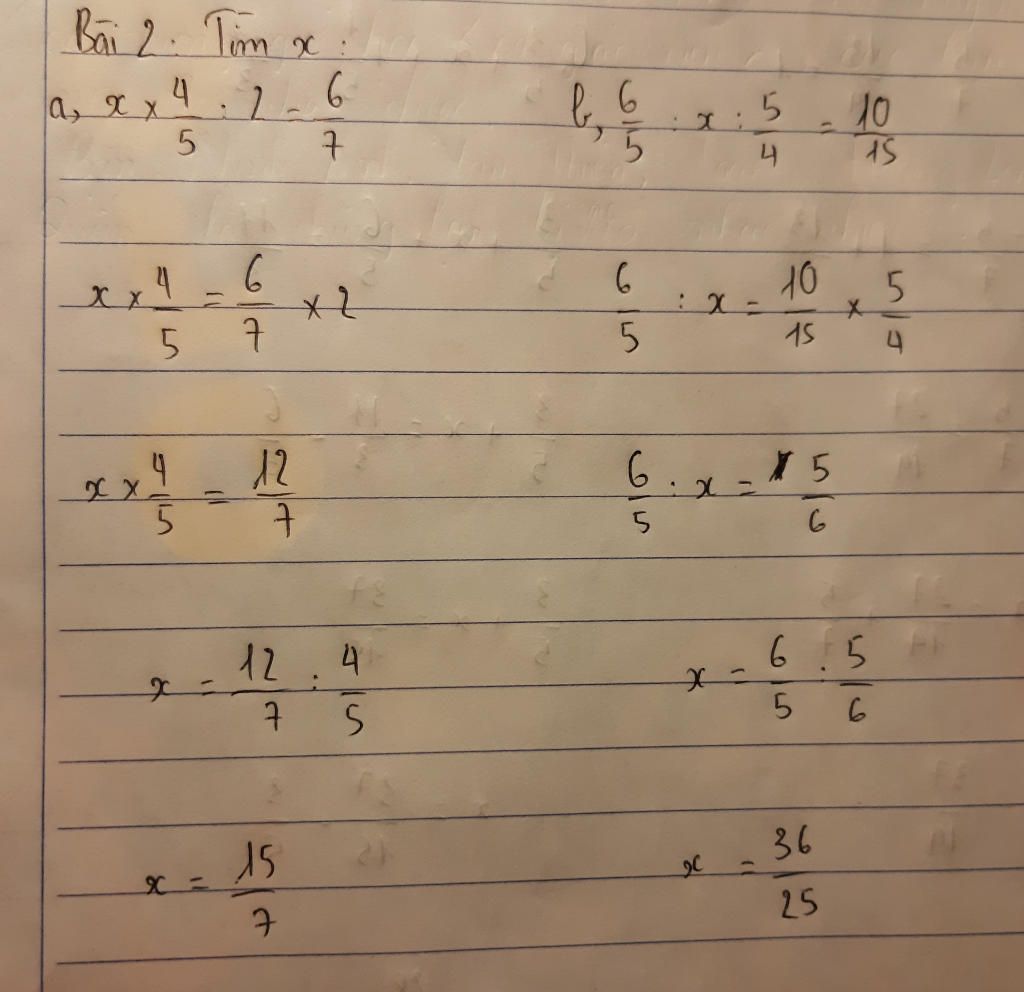 Bài 2. Tìm x :
a, x × 4/5 : 2 = 6/7
x × 4/5 = 6/7 × 2
x × 4/5 = 12/7
x = 12/7 : 4/5
x = 15/7
b, 6/5 : x : 5/4 = 10/15
6/5 : x = 10/15 × 5/4
6/5 : x = 5/6
x = 6/5 : 5/6
x = 36/25